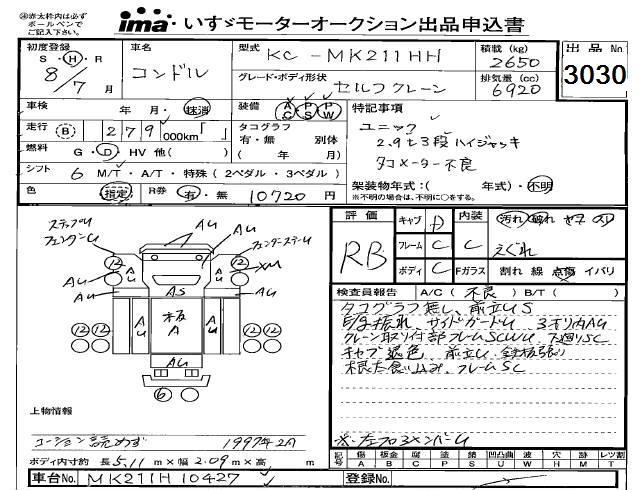 ㊟赤太枠内は必ず
ボールペンで
ご記入下さい。
ima いすゞモーターオークション出品申込書
初度登録 S・H・R 8/7月
車名 コンドル
型式 KC-MK211HH
積載(kg) 2650
出品No. 3030
グレード・ボディ形状 セルフクレーン
排気量(cc) 6920
車検 年 月・抹消
装備 AC・PS・PW
特記事項
走行 B 279,000km「 」
タコグラフ 有・無 別体 ( 年 月)
ユニック
2.9t3段ハイジャッキ
タコメーター不良
燃料 G・D・HV 他( )
シフト 6 M/T・A/T・特殊(2ペダル・3ペダル)
色 指定 R券 有・無 10720円
架装物年式:( 年式)・不明
※不明の場合は、不明に○をする。
評価 RB
キャブ D 内装 汚れ 破れ
フレーム C C えぐれ
ボディ C Fガラス C 割れ 線 点傷 イバリ
検査員報告 A/C(不良)B/T( )
タコグラフ無し、前立US
クレーン取り付部フレームSCWU、下廻りSC
キャブ退色 前立U 鉄板張り
根太食い込み、フレームSC
ステップU
フェンダーU
AU AU
フェンダーステーU
12 12
AU AU AU XU
AU AS AU
AU 板 A AU
12 12 12 12
AU
6
上物情報
コーション読めず 1997年2月
ボディ内寸約 長 5.11 m×幅 2.09 m×高 m
記号 傷 A 板金 B 腐 C 塗 P 錆 S 凹凸曲 U 波 W 穴 H 跡 M レツ割 T
車台No. MK211H 10427
登録No.